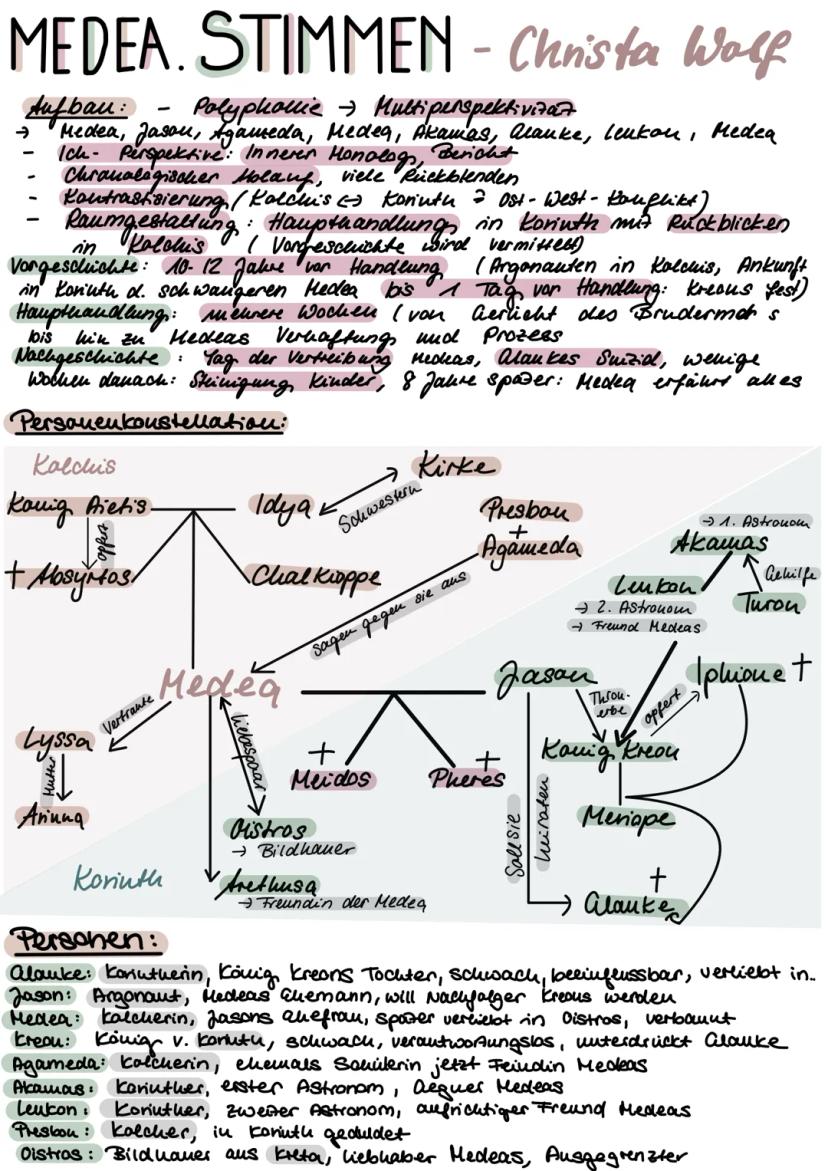 MEDEA. STIMMEN - Christa Wolf
Aufbau: - Polyphonie → Multiperspektivität
→ Medea, Jason, Agameda, Medea, Akamas, Glauke, Leukon, Medea
- Ich-Perspektive: Innerer Monolog, Bericht
- Chronologischer Ablauf, viele Rückblenden
- Kontrastisierung (Kolchis ↔ Korinth ≙ Ost-West-Konflikt)
- Raumgestaltung: Haupthandlung in Korinth mit Rückblicken
in Kolchis (Vorgeschichte wird vermittelt)
Vorgeschichte: 10-12 Jahre vor Handlung (Argonauten in Kolchis, Ankunft
in Korinth d. schwangeren Medea bis 1 Tag vor Handlung: Kreons Fest)
Haupthandlung: mehrere Wochen (von Gerücht des Brudermor s
bis hin zu Medeas Verhaftung und Prozess
Nachgeschichte: Tag der Vertreibung Medeas, Glaukes Suizid, wenige
Wochen danach: Steinigung Kinder, 8 Jahre später: Medea erfährt alles
Personenkonstellation:
Kolchis
Kirke
König Aietis
Idya
Schwestern
Presbon
+
Agameda
opfert
† Absyrtos
Chalkioppe
sagen gegen sie aus
→ 1. Astronom
Akamas
Leukon
→ 2. Astronom
→ Freund Medeas
Gehilfe
Turon
Medea
Jason
Iphione †
Thron-
erbe
opfert
Vertraute
Liebespaar
Lyssa
Mutter
Arinna
† Meidos
† Pheres
König Kreon
Merope
Soll sie
heiraten
Oistros
→ Bildhauer
Korinth
Arethusa
→ Freundin der Medea
†
Glauke
Personen:
Glauke: Korintherin, König Kreons Tochter, schwach, beeinflussbar, verliebt in..
Jason: Argonaut, Medeas Ehemann, will Nachfolger Kreons werden
Medea: Kolcherin, Jasons Ehefrau, später verliebt in Oistros, verbannt
Kreon: König v. Korinth, schwach, verantwortungslos, unterdrückt Glauke
Agameda: Kolcherin, ehemals Schülerin jetzt Feindin Medeas
Akamas: Korinther, erster Astronom, Gegner Medeas
Leukon: Korinther, zweiter Astronom, aufrichtiger Freund Medeas
Presbon: Kolcher, in Korinth geduldet
Oistros: Bildhauer aus Kreta, Liebhaber Medeas, Ausgegrenzter